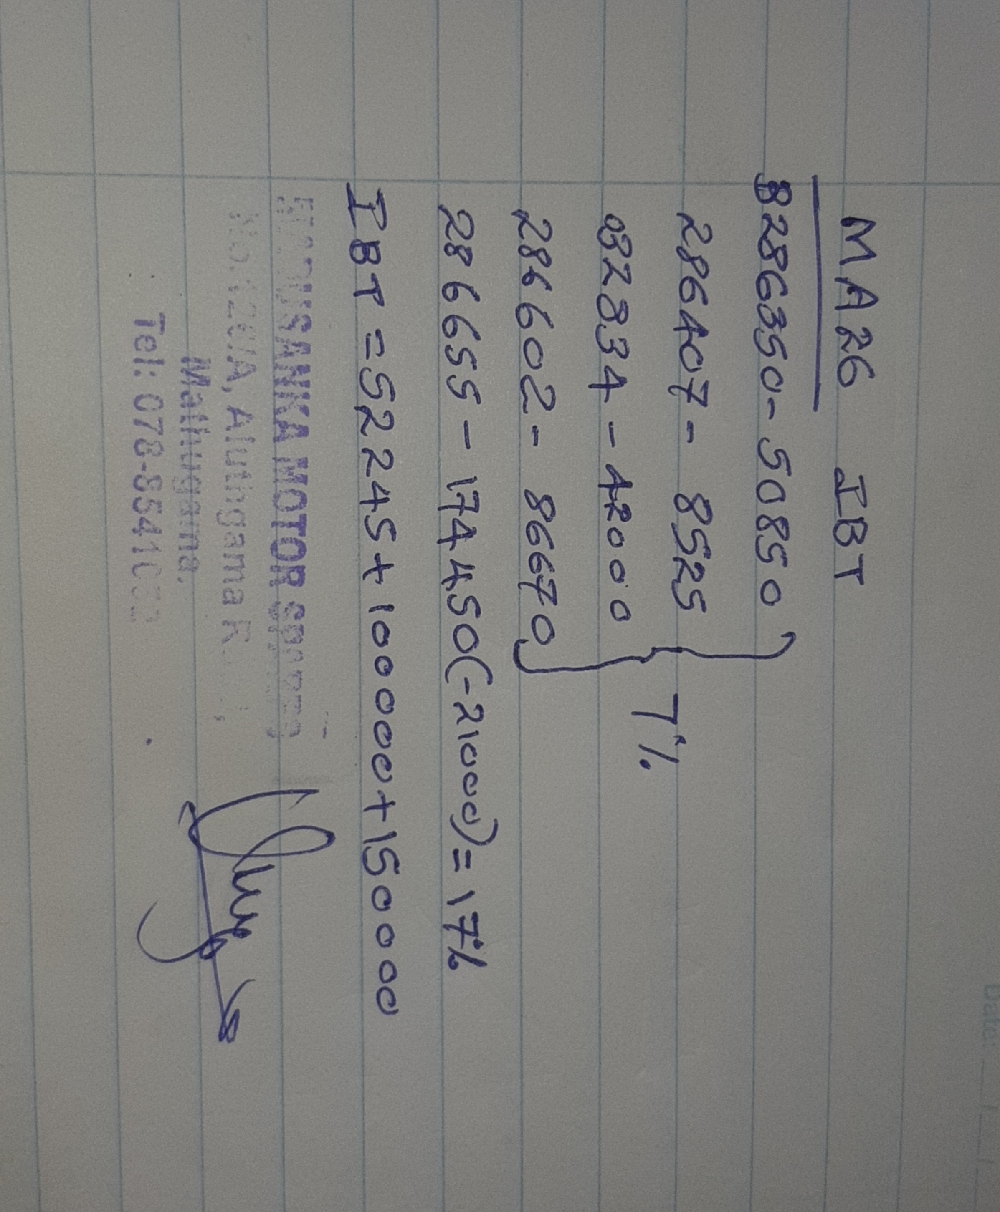 MA26 IBT
8286350- 50850
286407- 8525
032334 - 42000
7%
286602- 86670
286655 - 174450(-21000) = 17%
IBT = 52245 + 100000 + 150000
MOTOR
Aluthgama R
Mathugama.
Tel: 078-8541
Date: